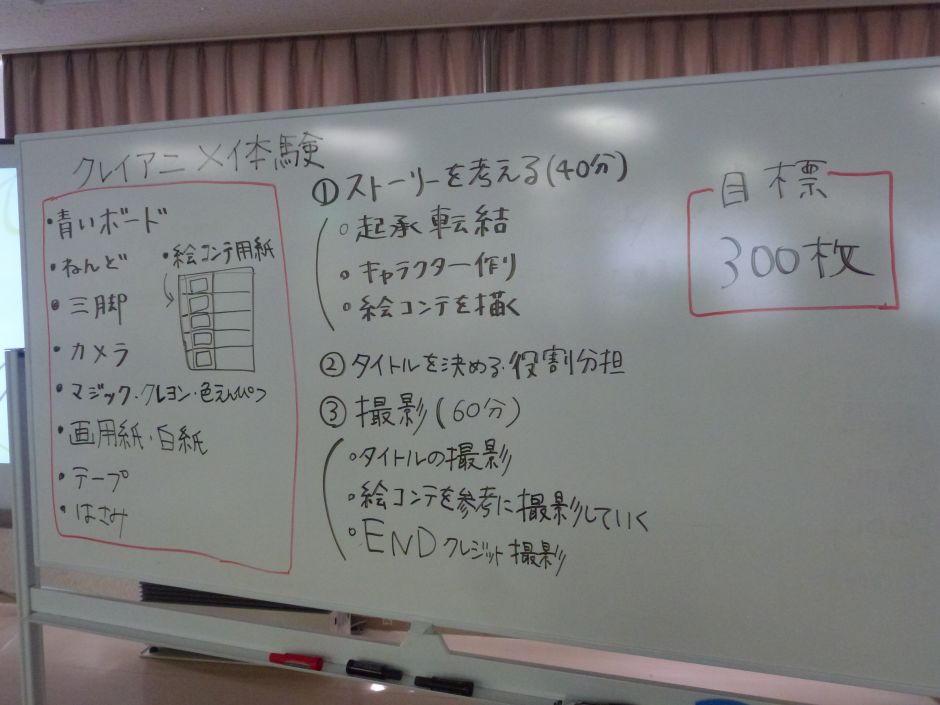 クレイアニメ体験
・青いボード
・ねんど
・三脚
・カメラ
・マジック・クレヨン・色えんぴつ
・画用紙・白紙
・テープ
・はさみ
・絵コンテ用紙
① ストーリーを考える(40分)
○起承転結
○キャラクター作り
○絵コンテを描く
② タイトルを決める・役割分担
③ 撮影(60分)
○タイトルの撮影
○絵コンテを参考に撮影していく
○ENDクレジット撮影
目標
300枚